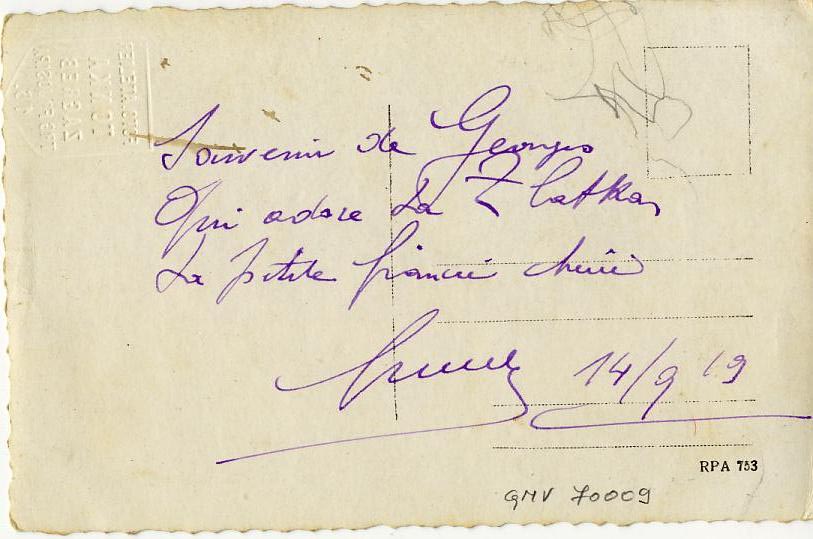 Souvenir de Georges
Qui adore sa Zlatka,
Sa petite fiancée chérie
14/9 19
RPA 753
GMV 70009